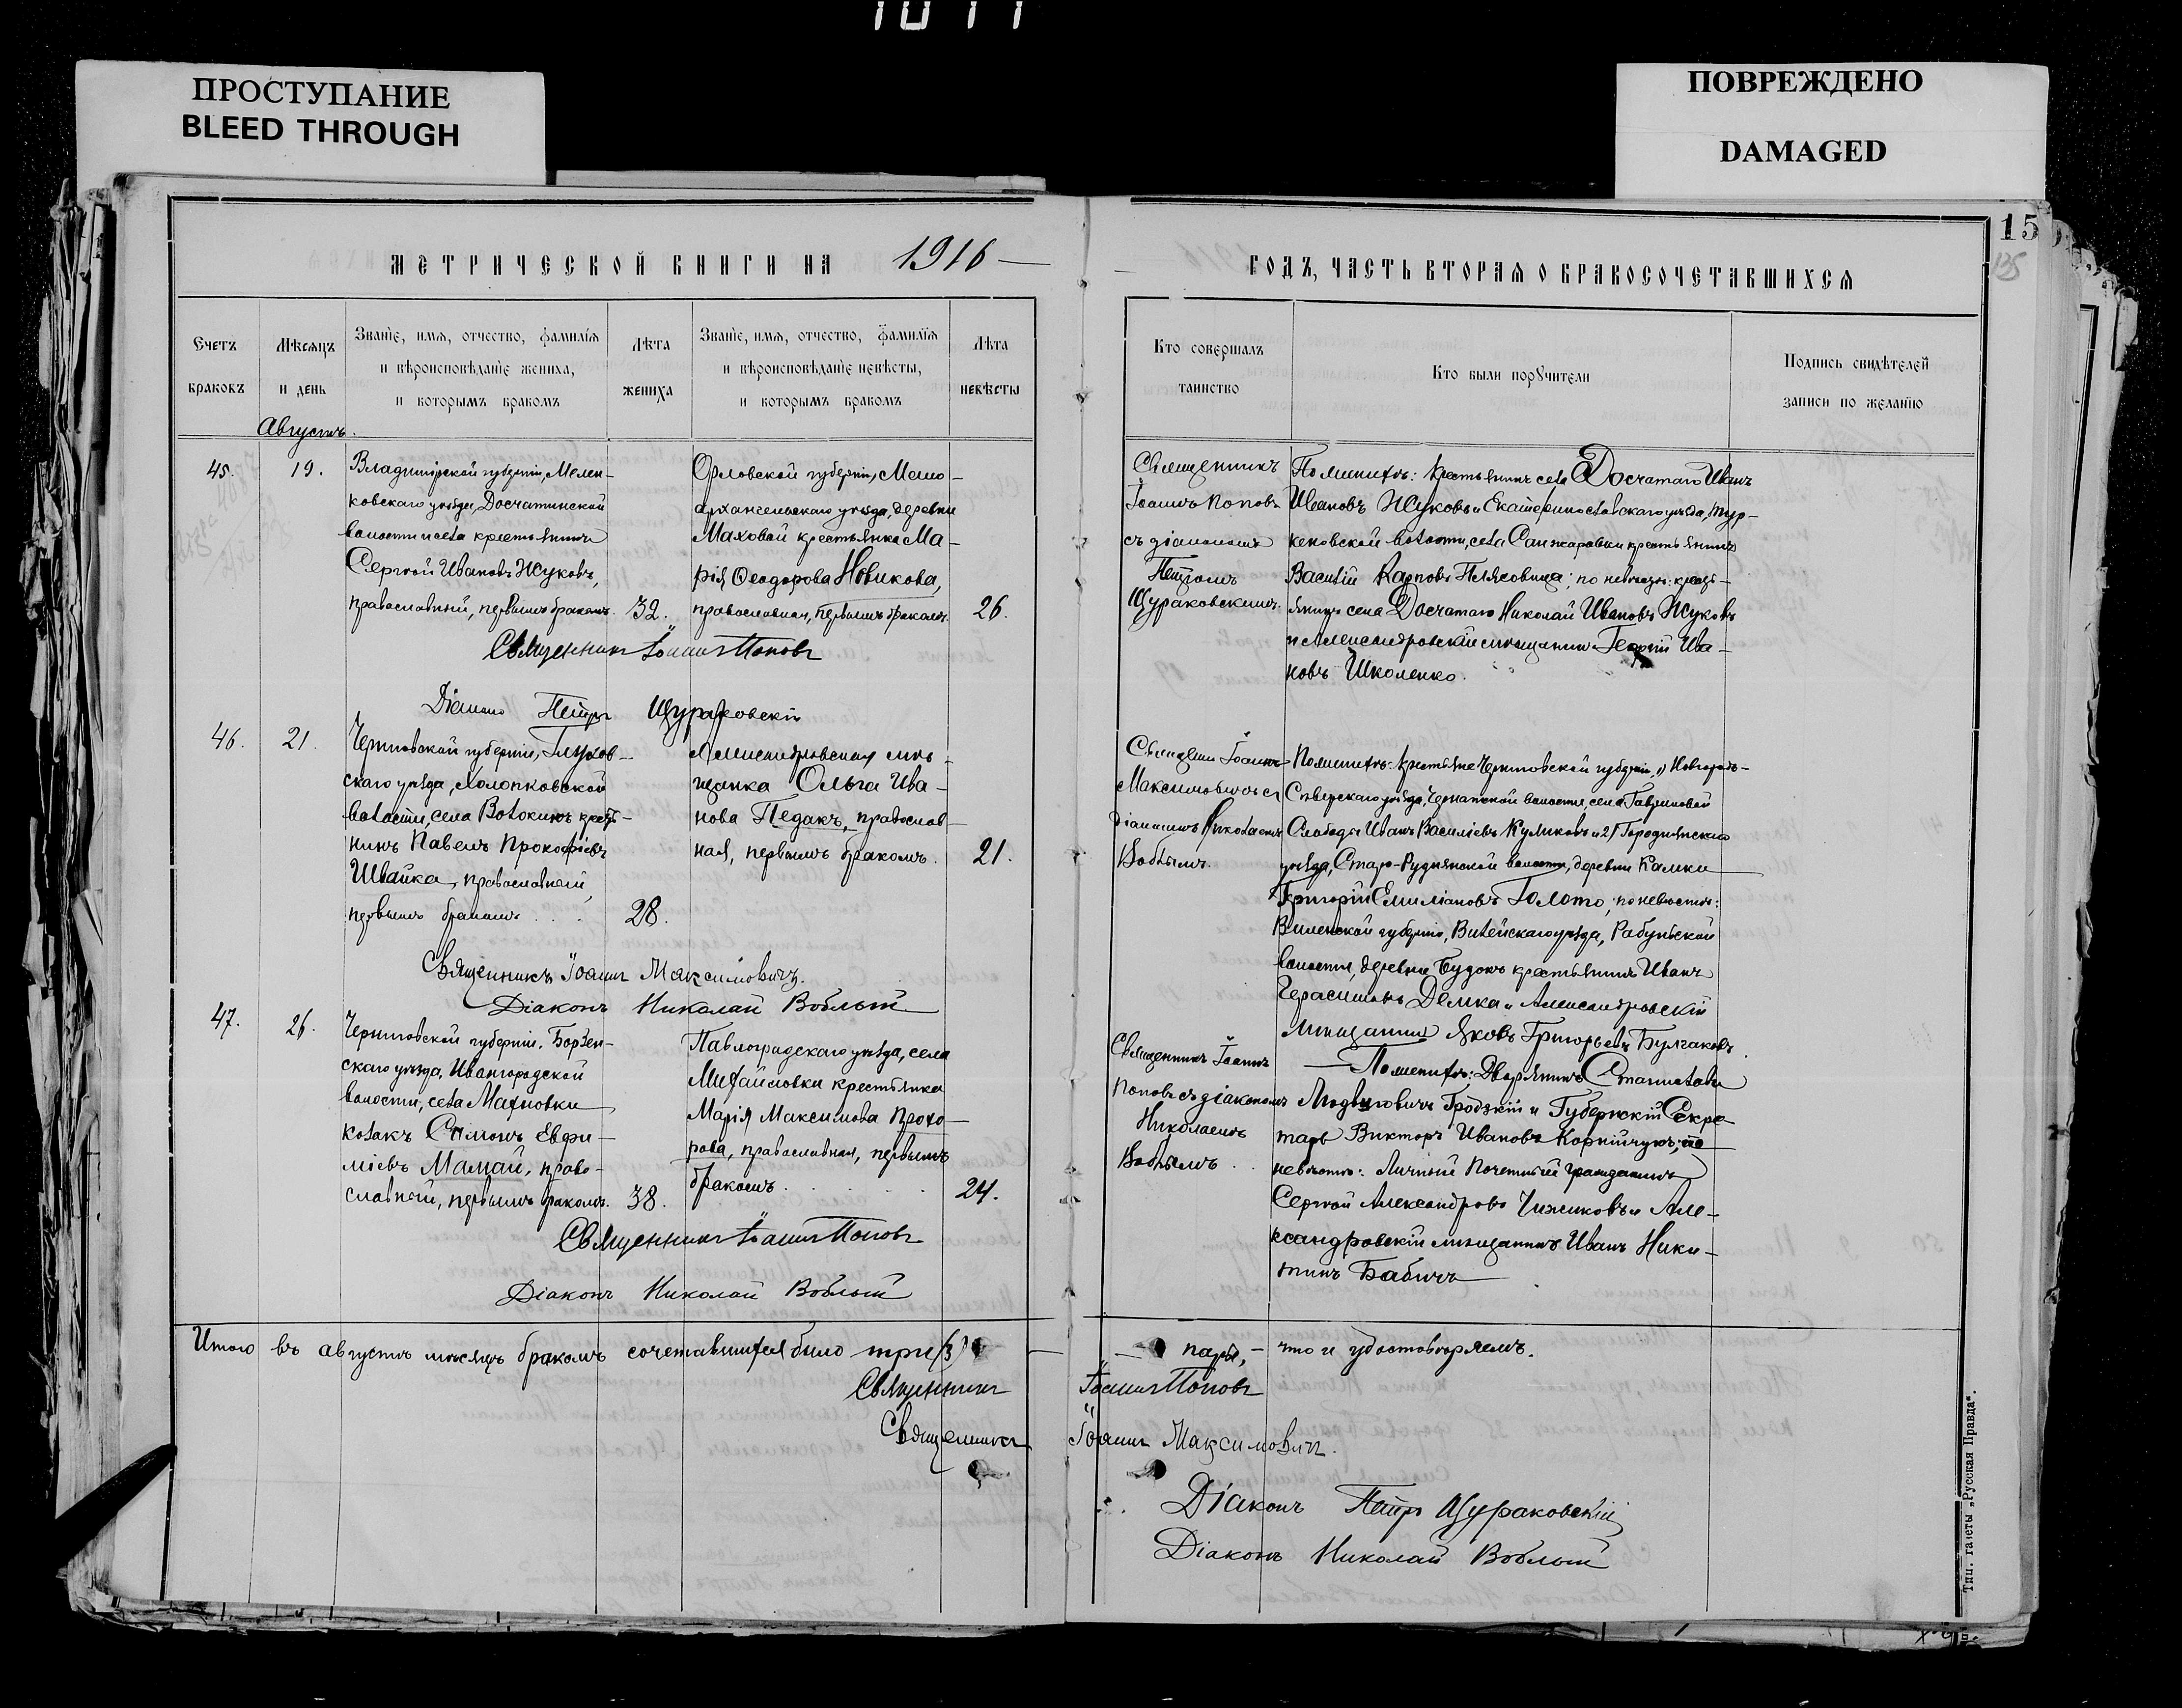 1011
ПРОСТУПАНИЕ
BLEED THROUGH
ПОВРЕЖДЕНО
DAMAGED
15
135
МЕТРИЧЕСКОЙ КНИГИ НА 1916
ГОДЪ, ЧАСТЬ ВТОРАЯ О БРАКОСОЧЕТАВШИХСЯ
Счетъ
браковъ
Мѣсяцъ
и день
Званїе, имя, отчество, фамилїя
и вѣроисповѣданїе жениха,
и которымъ бракомъ
Лѣта
жениха
Званїе, имя, отчество, фамилїя
и вѣроисповѣданїе невѣсты,
и которымъ бракомъ
Лѣта
невѣсты
Кто совершалъ
таинство
Кто были порꙋчители
Подпись свидѣтелей
записи по желанїю
Августъ.
45.
19.
Владимірской губерніи, Мелен-
ковскаго уѣзда, Досчатинской
волости и села крестьянинъ
Сергѣй Ивановъ Жуковъ,
православный, первымъ бракомъ.
32.
Орловской губерніи, Мало-
архангельскаго уѣзда, деревни
Маховой крестьянка Ма-
рія Ѳеодорова Новикова,
православная, первымъ бракомъ.
26.
Священникъ
Іоаннъ Поповъ
съ діакономъ
Петромъ
Щураковскимъ.
По женихѣ: крестьянинъ села Досчатаго Иванъ
Ивановъ Жуковъ и Екатеринославскаго уѣзда,
волости, села крестьянинъ
Василій Карповъ по невѣстѣ: кресть-
янинъ села Досчатаго Николай Ивановъ Жуковъ
и Александровскій мѣщанинъ Георгій Ива-
новъ Школенко.
Священникъ Іоаннъ Поповъ
Діаконъ Петръ Щураковскій
46.
21.
Черниговской губерніи, Глухов-
скаго уѣзда, Холопковской
волости, села Вотокинъ кресть-
нинъ Павелъ Прокофіевъ
Швайка, православный,
первымъ бракомъ
28.
Александровская мѣ-
щанка Ольга Ива-
нова Педакъ, православ-
ная, первымъ бракомъ.
21.
Священникъ Іоаннъ
Максимовичъ съ
діакономъ Николаемъ
Воблымъ.
По женихѣ: крестьяне Черниговской губерніи, 1) Новгородъ-
Сѣверскаго уѣзда, волости, села
Слободы Иванъ Василіевъ Куликовъ и 2) Городнянскаго
уѣзда, Старо-Руднянской волости, деревни Камки
Григорій Емиліановъ Голото, по невѣстѣ:
Виленской губерніи, Вилейскаго уѣзда, Рабуньской
волости, деревни Будокъ крестьянинъ Иванъ
Герасимовъ Демка и Александровскій
мѣщанинъ Яковъ Григорьевъ Булгаковъ.
Священникъ Іоаннъ Максимовичъ.
Діаконъ Николай Воблый
47.
26.
Черниговской губерніи, Борзен-
скаго уѣзда, Ивангородской
волости, села Махновки
козакъ Симонъ Евфи-
міевъ Мамай, право-
славный, первымъ бракомъ.
38.
Павлоградскаго уѣзда, села
Михайловки крестьянка
Марія Максимова Прохо-
рова, православная, первымъ
бракомъ.
24.
Священникъ Іоаннъ
Поповъ съ діакономъ
Николаемъ
Воблымъ
По женихѣ: Дворянинъ Станиславъ
Людвиговичъ Гродзкій и Губернскій Секре-
тарь Викторъ Ивановъ Корнійчукъ; по
невѣстѣ: Личный Почетный Гражданинъ
Сергѣй Александровъ Чижиковъ и Але-
ксандровскій мѣщанинъ Иванъ Ники-
тинъ Бабичъ
Священникъ Іоаннъ Поповъ
Діаконъ Николай Воблый
Итого въ августѣ мѣсяцѣ бракомъ сочетавшихся было три (3) пары, – что и удостовѣряемъ.
Священникъ Іоаннъ Поповъ
Священникъ Іоаннъ Максимовичъ.
Діаконъ Петръ Щураковскій
Діаконъ Николай Воблый
Тип. газеты „Русская Правда".